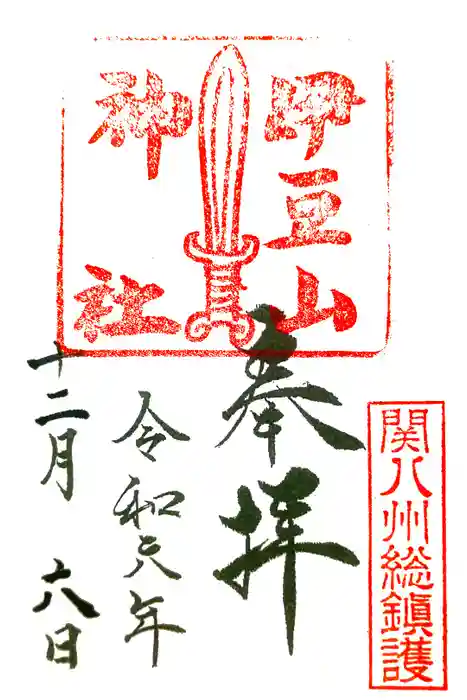 関八州総鎮護
伊豆山
神社
奉拝
令和元年
十二月六日